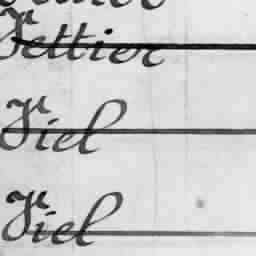 Vettier
Viel
Viel